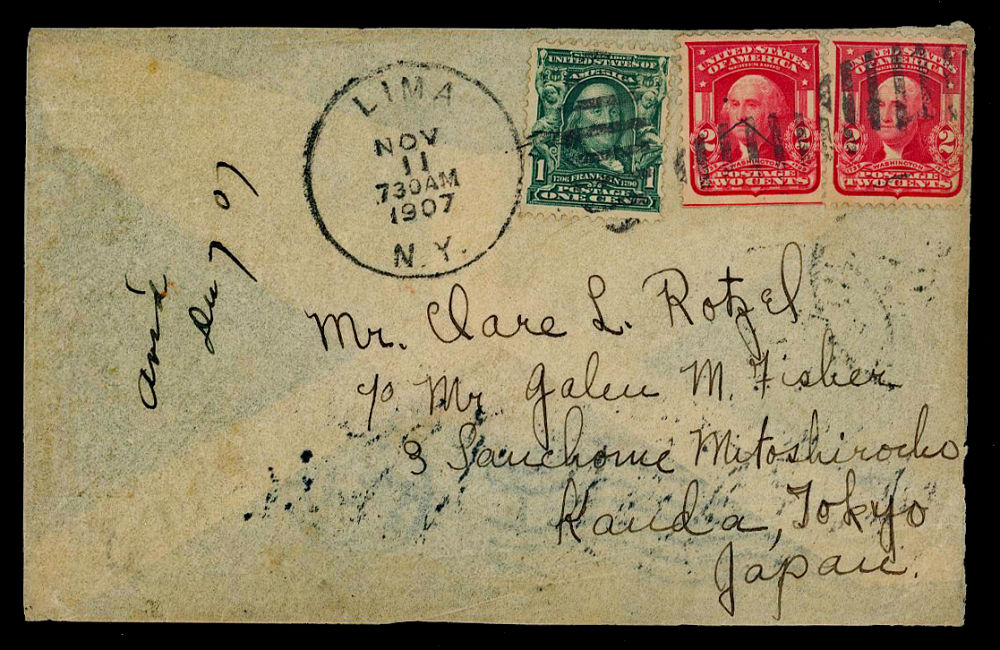 LIMA
NOV
11
730AM
1907
N.Y.
UNITED STATES OF
AMERICA
1 1
FRANKLIN
POSTAGE
ONE CENT
UNITED STATES
OF AMERICA
2 2
WASHINGTON
POSTAGE
TWO CENTS
UNITED STATES
OF AMERICA
2 2
WASHINGTON
POSTAGE
TWO CENTS
Mr. Clare L. Rotzel
c/o Mr Galen M. Fisher
3 Sanchome Mitoshirocho
Kanda, Tokyo
Japan.
7 07